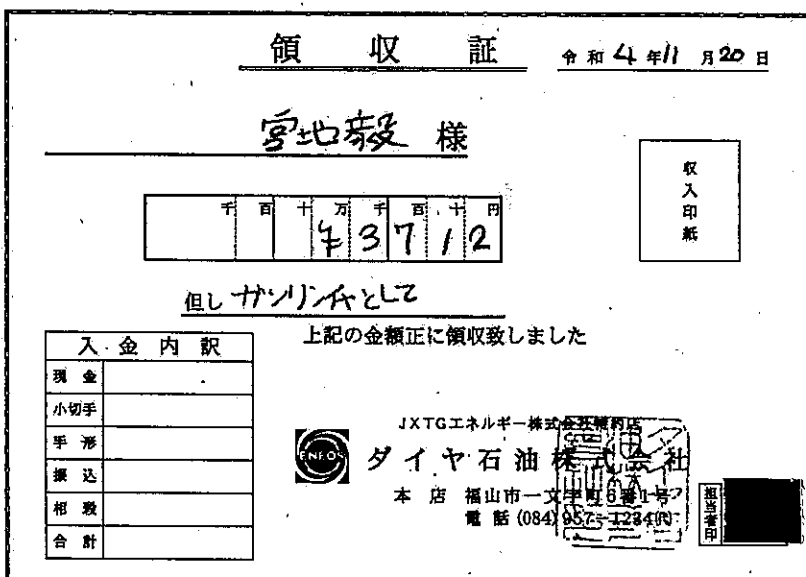 領収証
令和4年11月20日
宮地毅 様
収入印紙
千百十万千百十円
¥3712
但し ガソリン代として
上記の金額正に領収致しました
入金内訳
現金
小切手
手形
振込
相殺
合計
JXTGエネルギー株式会社特約店
ENEOS
ダイヤ石油株式会社
本店 福山市一文字町6番1号
電話(084)957-1234(代)
担当者印